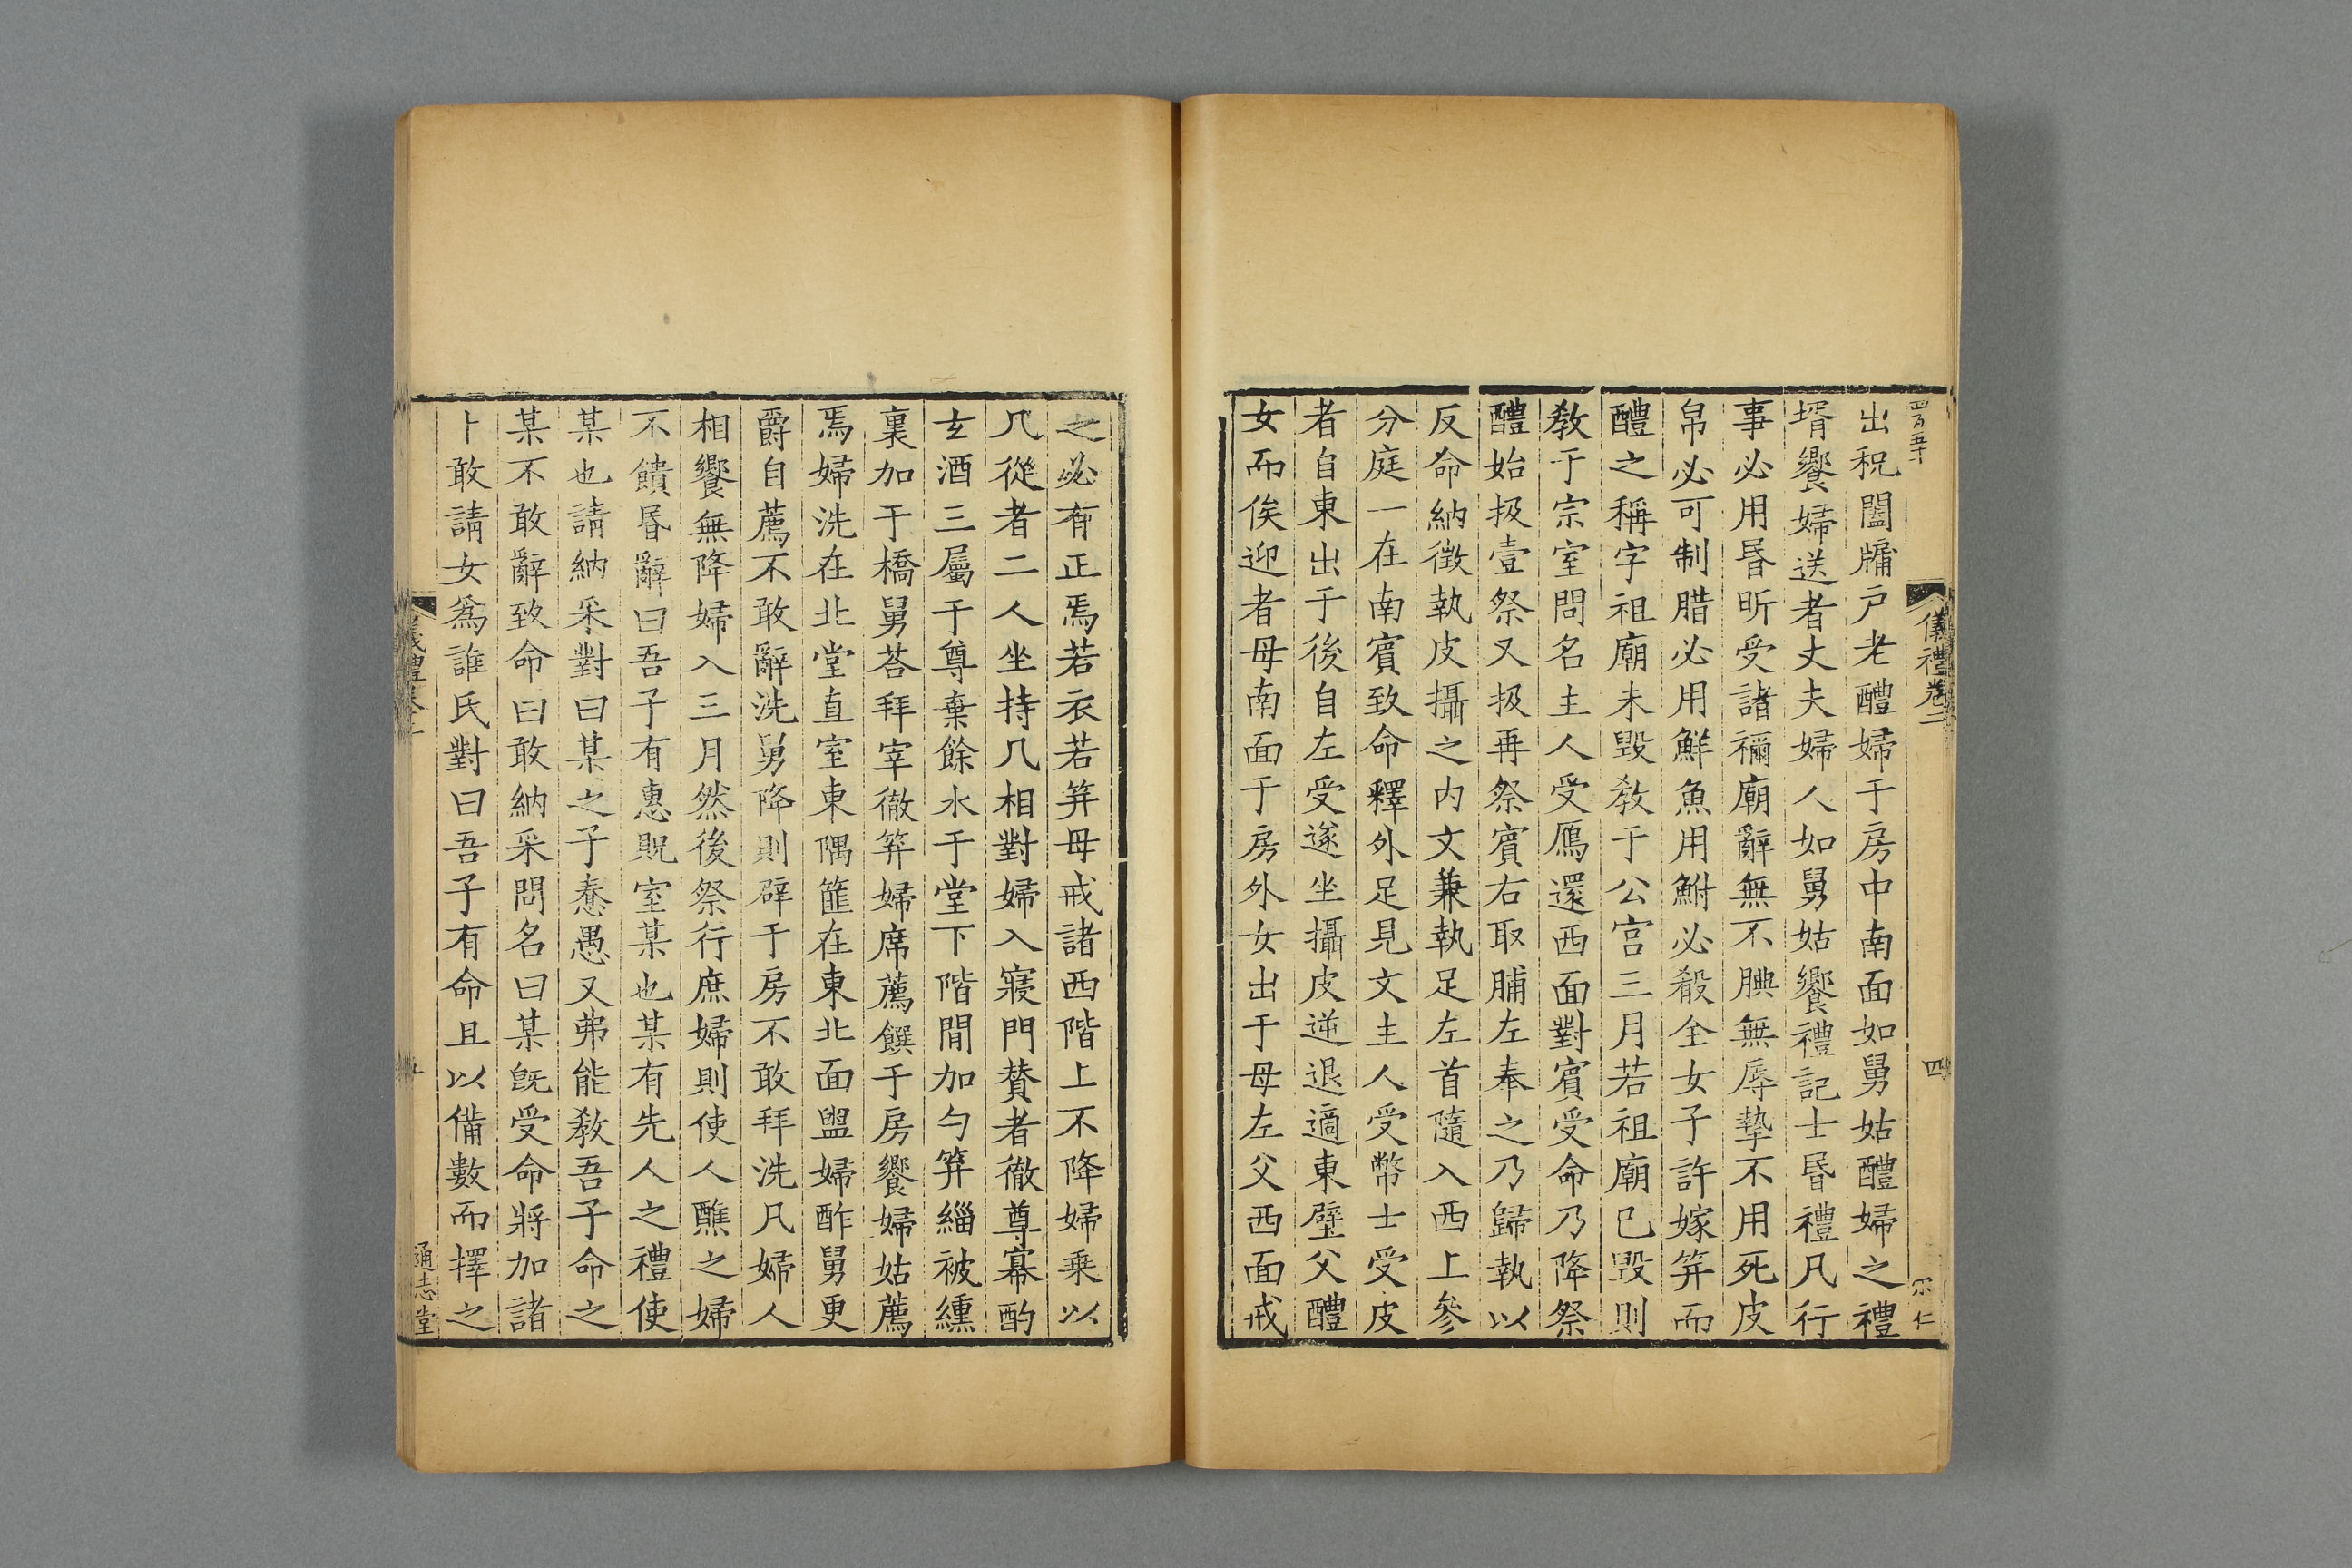 四百五十
儀禮卷二
四
尒仁
出祝闔牖户老醴婦于房中南面如舅姑醴婦之禮
壻饗婦送者丈夫婦人如舅姑饗禮記士昬禮凡行
事必用昬昕受諸禰廟辭無不腆無辱摯不用死皮
帛必可制腊必用鮮魚用鮒必殽全女子許嫁笄而
醴之稱字祖廟未毀教于公宮三月若祖廟已毀則
教于宗室問名主人受鴈還西面對賓受命乃降祭
醴始扱壹祭又扱再祭賓右取脯左奉之乃歸執以
反命納徵執皮攝之内文兼執足左首隨入西上參
分庭一在南賓致命釋外足見文主人受幣士受皮
者自東出于後自左受遂坐攝皮逆退適東壁父醴
女而俟迎者母南面于房外女出于母左父西面戒
之必有正焉若衣若笄母戒諸西階上不降婦乗以
几從者二人坐持几相對婦入寢門賛者徹尊冪酌
玄酒三屬于尊棄餘水于堂下階間加勺笲緇被纁
裏加于橋舅荅拜宰徹笲婦席薦饌于房饗婦姑薦
焉婦洗在北堂直室東隅篚在東北面盥婦酢舅更
爵自薦不敢辭洗舅降則辟于房不敢拜洗凡婦人
相饗無降婦入三月然後祭行庶婦則使人醮之婦
不饋昬辭曰吾子有惠貺室某也某有先人之禮使
某也請納采對曰某之子惷愚又弗能教吾子命之
某不敢辭致命曰敢納采問名曰某旣受命將加諸
卜敢請女爲誰氏對曰吾子有命且以備數而擇之
儀禮卷二
通志堂